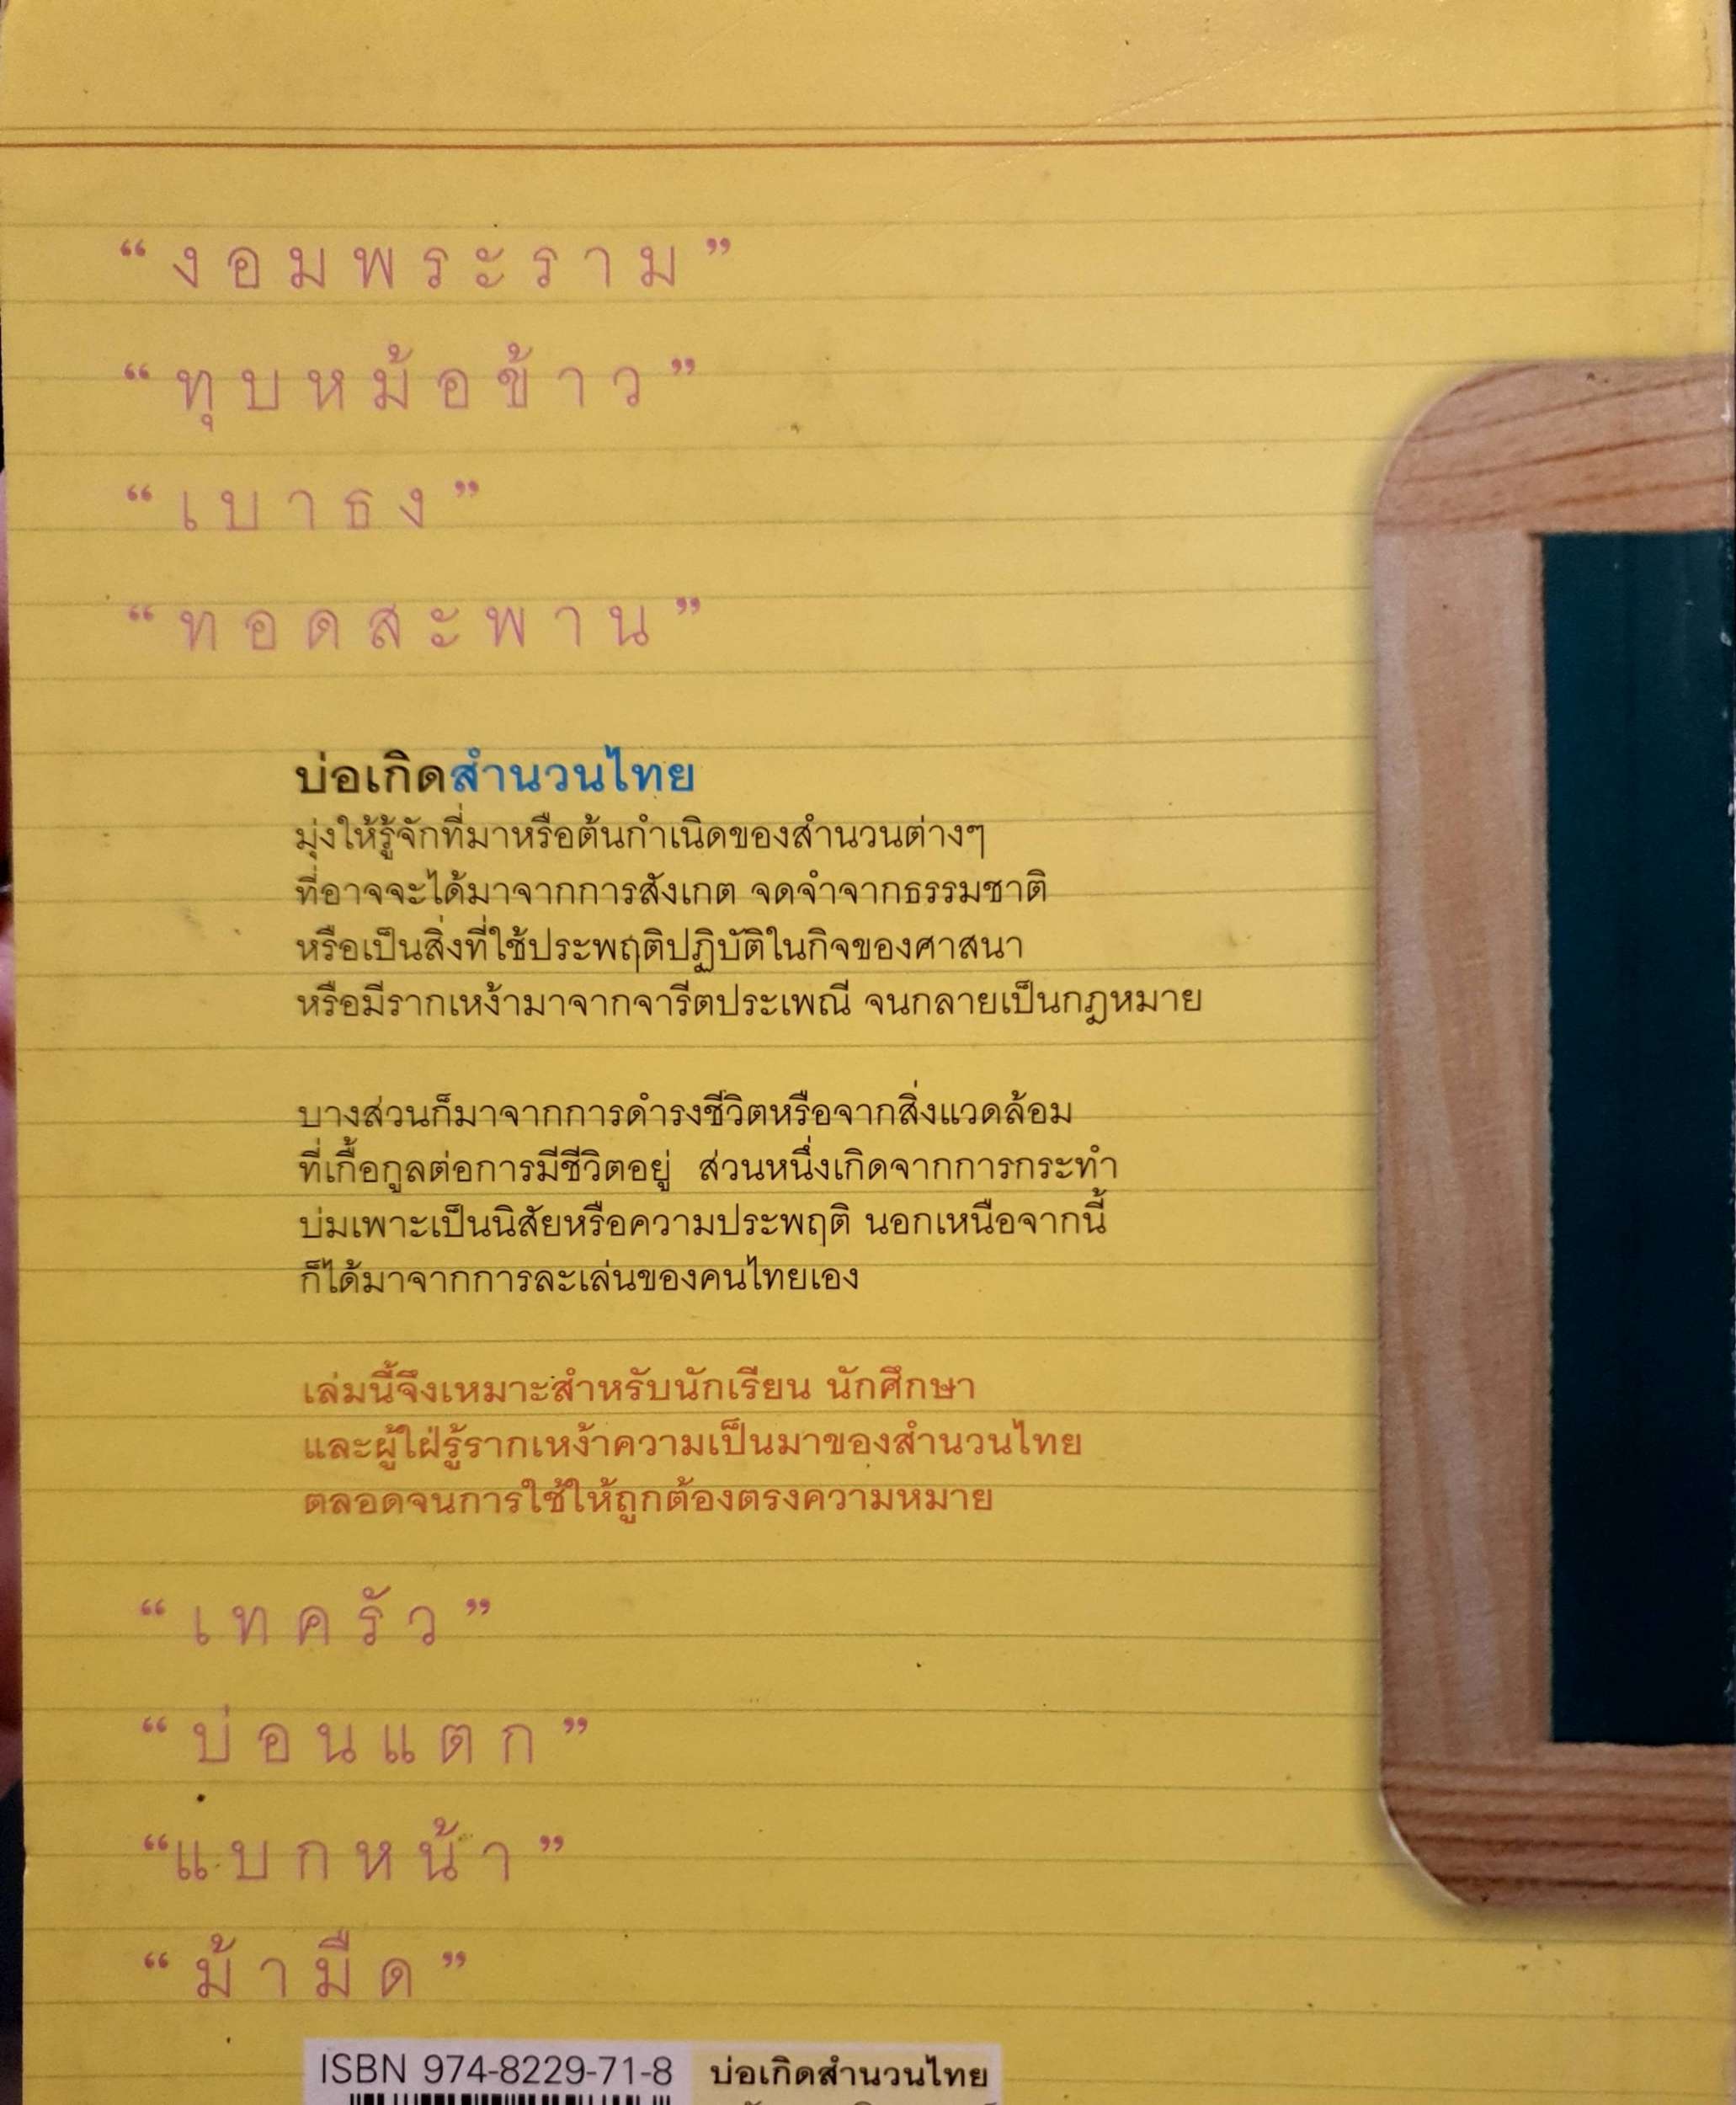 “งอมพระราม”
“ทุบหม้อข้าว”
“เบาธง”
“ทอดสะพาน”
บ่อเกิดสำนวนไทย
มุ่งให้รู้จักที่มาหรือต้นกำเนิดของสำนวนต่างๆ
ที่อาจจะได้มาจากการสังเกต จดจำจากธรรมชาติ
หรือเป็นสิ่งที่ใช้ประพฤติปฏิบัติในกิจของศาสนา
หรือมีรากเหง้ามาจากจารีตประเพณี จนกลายเป็นกฎหมาย
บางส่วนก็มาจากการดำรงชีวิตหรือจากสิ่งแวดล้อม
ที่เกื้อกูลต่อการมีชีวิตอยู่ ส่วนหนึ่งเกิดจากการกระทำ
บ่มเพาะเป็นนิสัยหรือความประพฤติ นอกเหนือจากนี้
ก็ได้มาจากการละเล่นของคนไทยเอง
เล่มนี้จึงเหมาะสำหรับนักเรียน นักศึกษา
และผู้ใฝ่รู้รากเหง้าความเป็นมาของสำนวนไทย
ตลอดจนการใช้ให้ถูกต้องตรงความหมาย
“เทครัว”
“บ่อนแตก”
“แบกหน้า”
“ม้ามืด”
ISBN 974-8229-71-8 บ่อเกิดสำนวนไทย